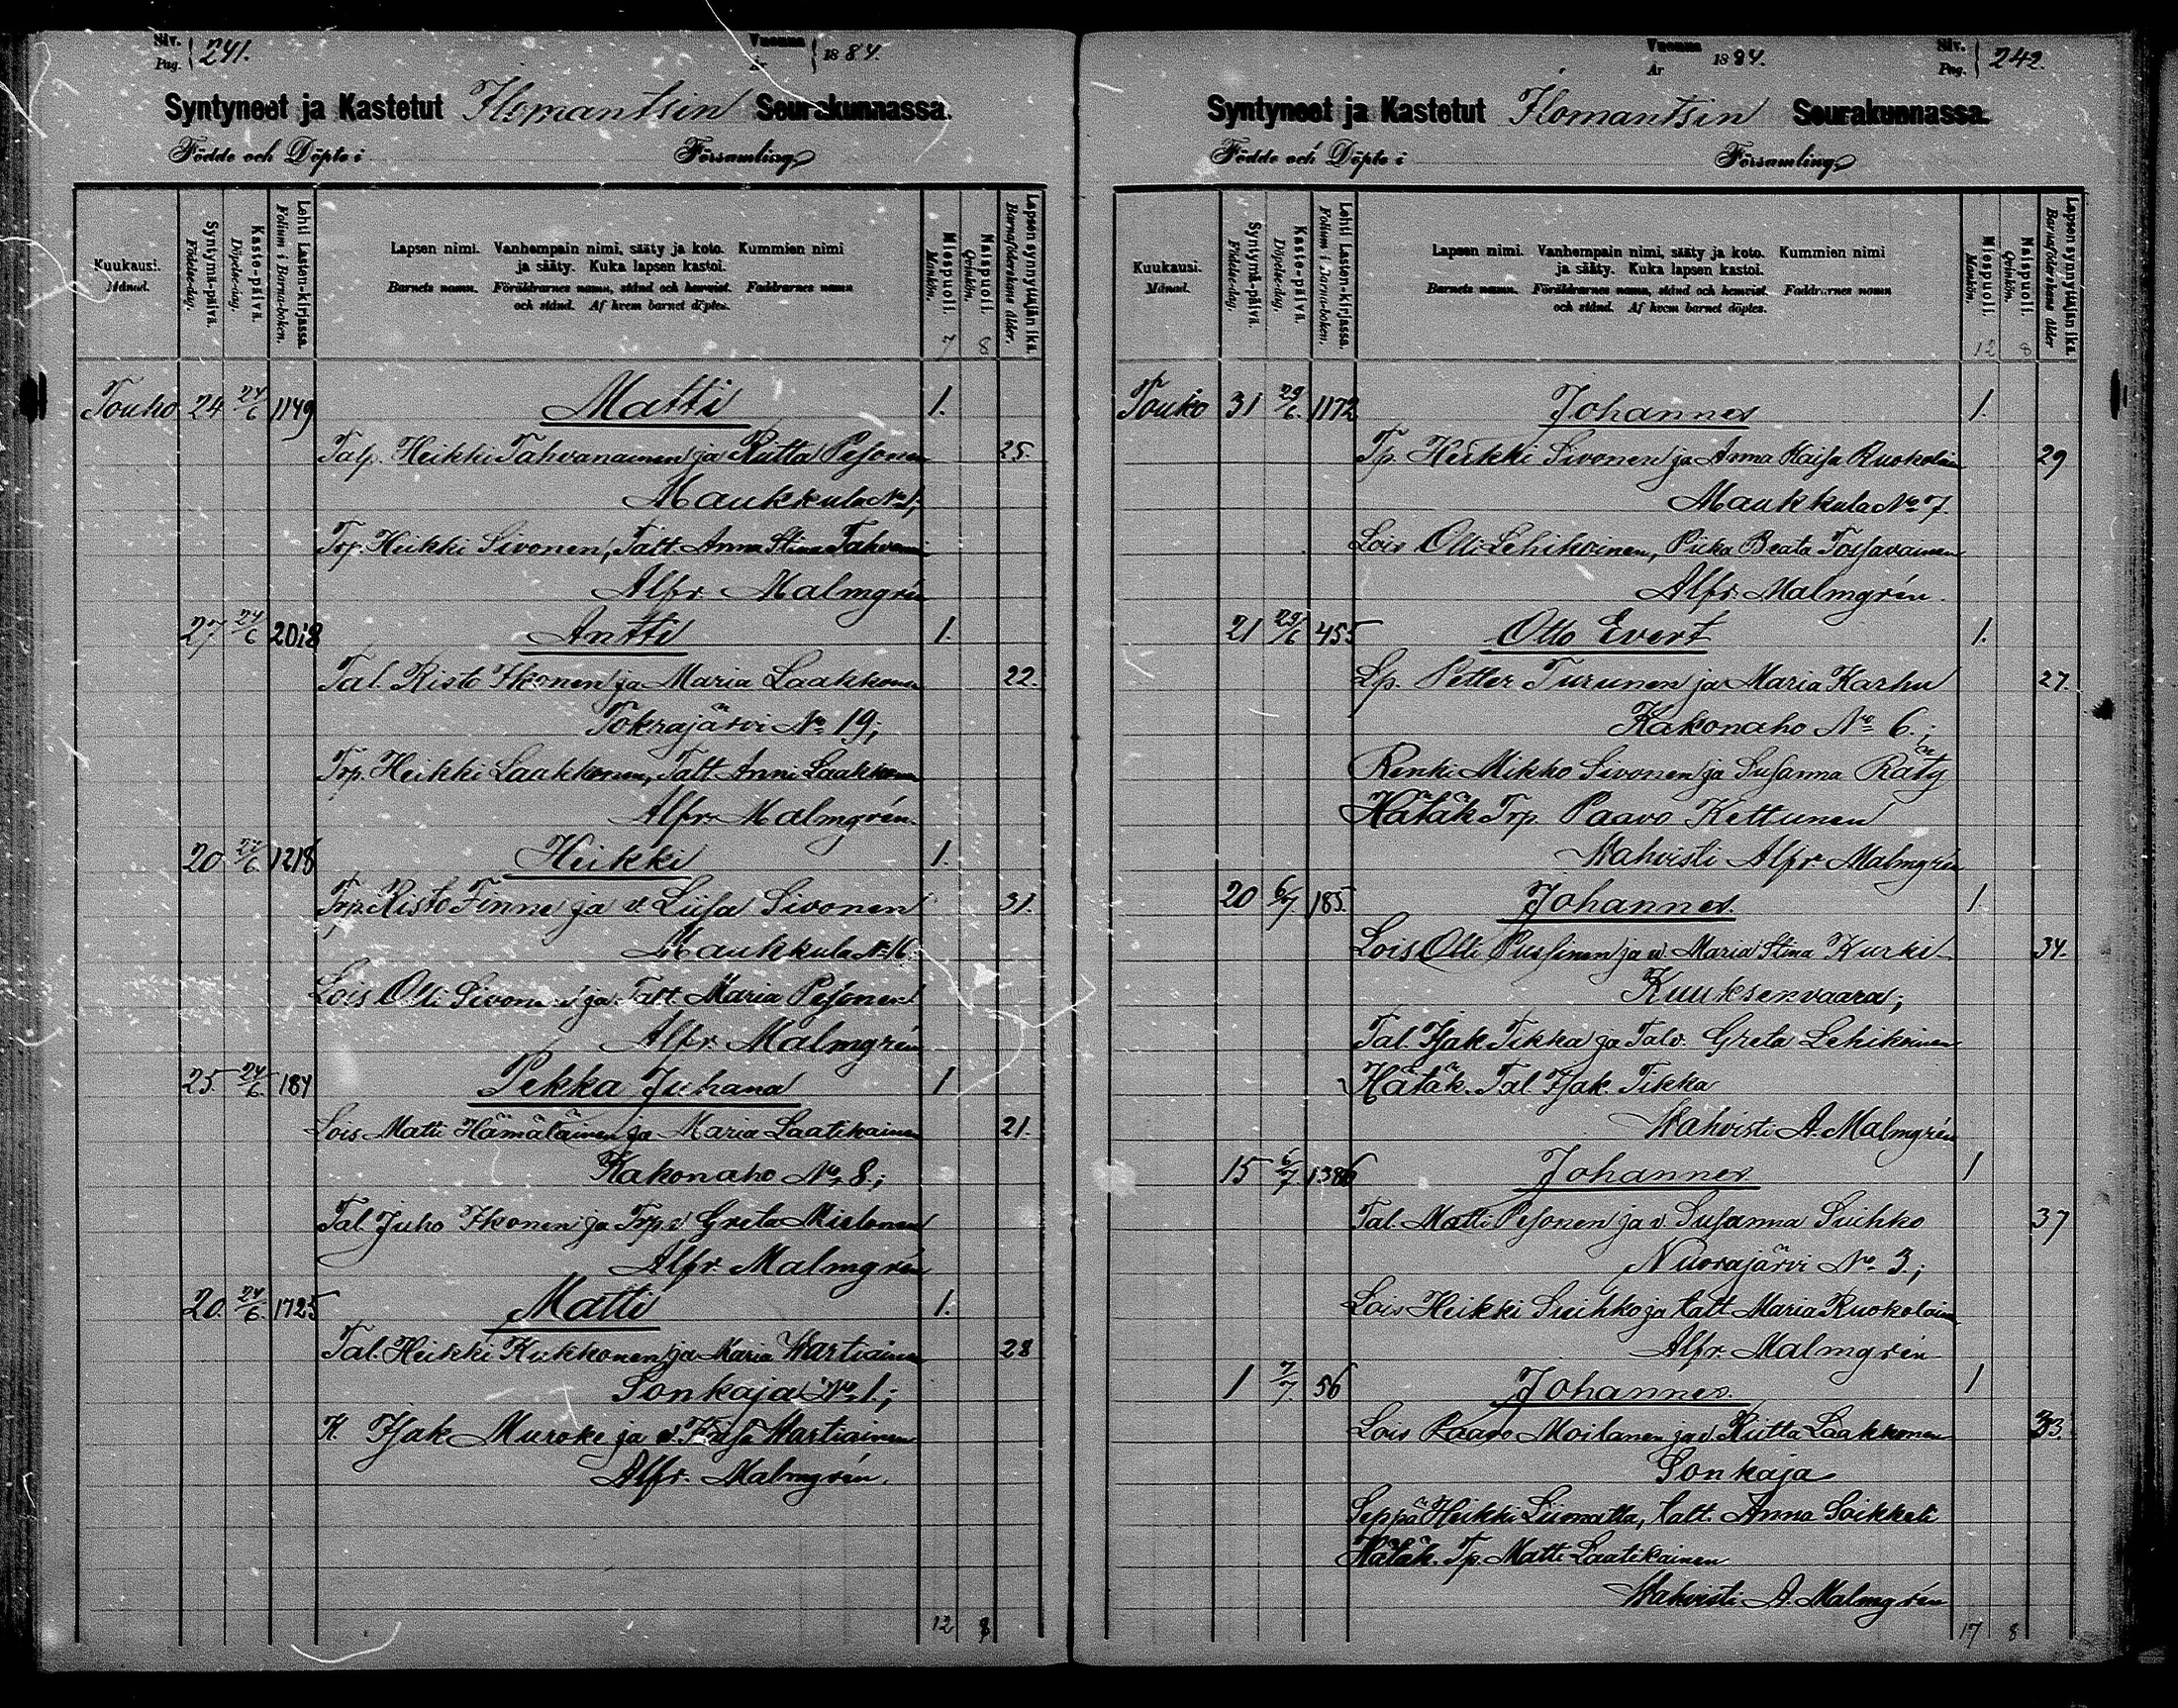 Siv. Pag. 241. Vuonna År 1884.
Syntyneet ja Kastetut Ilomantsin Seurakunnassa.
Födde och Döpte i Församling
Kuukausi. Månad.
Syntymä-päivä. Födelse-dag.
Kasto-päivä. Döpelse-dag.
Lehti Lasten-kirjassa. Folium i Barna-boken.
Lapsen nimi. Vanhempain nimi, sääty ja koto. Kummien nimi
ja sääty. Kuka lapsen kastoi.
Barnets namn. Föräldrarnes namn, stånd och hemvist. Faddrarnes namn
och stånd. Af hvem barnet döptes.
Miespuoli. Mankön.
Naispuoli. Qvinkön.
Lapsen synnyttäjän ikä. Barnaföderskans ålder.
7 8
Touko 24 24/6 1149 Matti 1.
Talp. Heikki Tahvanainen ja Riitta Pesonen 25.
Maukkula No 1;
Trp. Heikki Sivonen, Talt. Anna Stina Tahvanai
Alfr. Malmgrén
27 24/6 2018 Antti 1.
Tal. Risto Ikonen ja Maria Laakkonen 22.
Tokrajärvi No 19;
Trp. Heikki Laakkonen, Talt Anni Laakkonen
Alfr. Malmgrén.
20 24/6 1218 Heikki 1.
Trp. Risto Finne ja v. Liisa Sivonen 31.
Maukkula No 16.
Lois Olli Sivonen ja Talt. Maria Pesonen
Alfr. Malmgrén
25. 24/6. 184 Pekka Juhana 1
Lois Matti Hämäläinen ja Maria Laatikainen 21.
Kakonaho No 8.;
Tal. Juho Ikonen ja Trp. v Greta Mielonen
Alfr. Malmgrén
20. 24/6. 1725 Matti 1.
Tal. Heikki Kukkonen ja Maria Wartiainen 28
Sonkaja No 1;
K. Isak Muroke ja v. Kaisa Wartiainen
Alfr. Malmgrén.
12 8
Vuonna År 1884. Siv. Pag. 242.
Syntyneet ja Kastetut Ilomantsin Seurakunnassa.
Födde och Döpte i Församling
Kuukausi. Månad.
Syntymä-päivä. Födelse-dag.
Kasto-päivä. Döpelse-dag.
Lehti Lasten-kirjassa. Folium i Barna-boken.
Lapsen nimi. Vanhempain nimi, sääty ja koto. Kummien nimi
ja sääty. Kuka lapsen kastoi.
Barnets namn. Föräldrarnes namn, stånd och hemvist. Faddrarnes namn
och stånd. Af hvem barnet döptes.
Miespuoli. Mankön.
Naispuoli. Qvinkön.
Lapsen synnyttäjän ikä. Barnaföderskans ålder
12 8
Touko 31 29/6. 1172 Johannes 1.
Tp. Heikki Sivonen ja Anna Kaisa Ruokolain 29
Maukkula No 7.
Lois Olli Lehikoinen, Piika Beata Tossavainen
Alfr. Malmgrén.
21 29/6 455 Otto Evert 1.
Lp. Petter Turunen ja Maria Karhu 27.
Kakonaho No 6.;
Renki Mikko Sivonen ja Susanna Räty
Hätäk Trp. Paavo Kettunen
Wahvisti Alfr. Malmgrén
20 6/7. 185. Johannes. 1
Lois Olli Pussinen ja v. Maria Stina Kurki 34.
Kuuksenvaara;
Tal. Isak Tikka ja Talv. Greta Lehikoinen
Hätäk. Tal. Isak. Tikka
Wahvisti A. Malmgrén
15 6/7. 1386 Johannes 1
Tal. Matti Pesonen ja v. Susanna Suihko 37
Nuorajärvi No 3.;
Lois Heikki Suihko ja talt. Maria Ruokolain
Alfr. Malmgrén
1 7/7. 56 Johannes. 1
Lois Paavo Moilanen ja v. Riitta Laakkonen 33.
Sonkaja
Seppä Heikki Liimatta, talt. Anna Soikkeli
Hätäk. Tp. Matti Laatikainen
Wahvisti A. Malmgrén
17 8